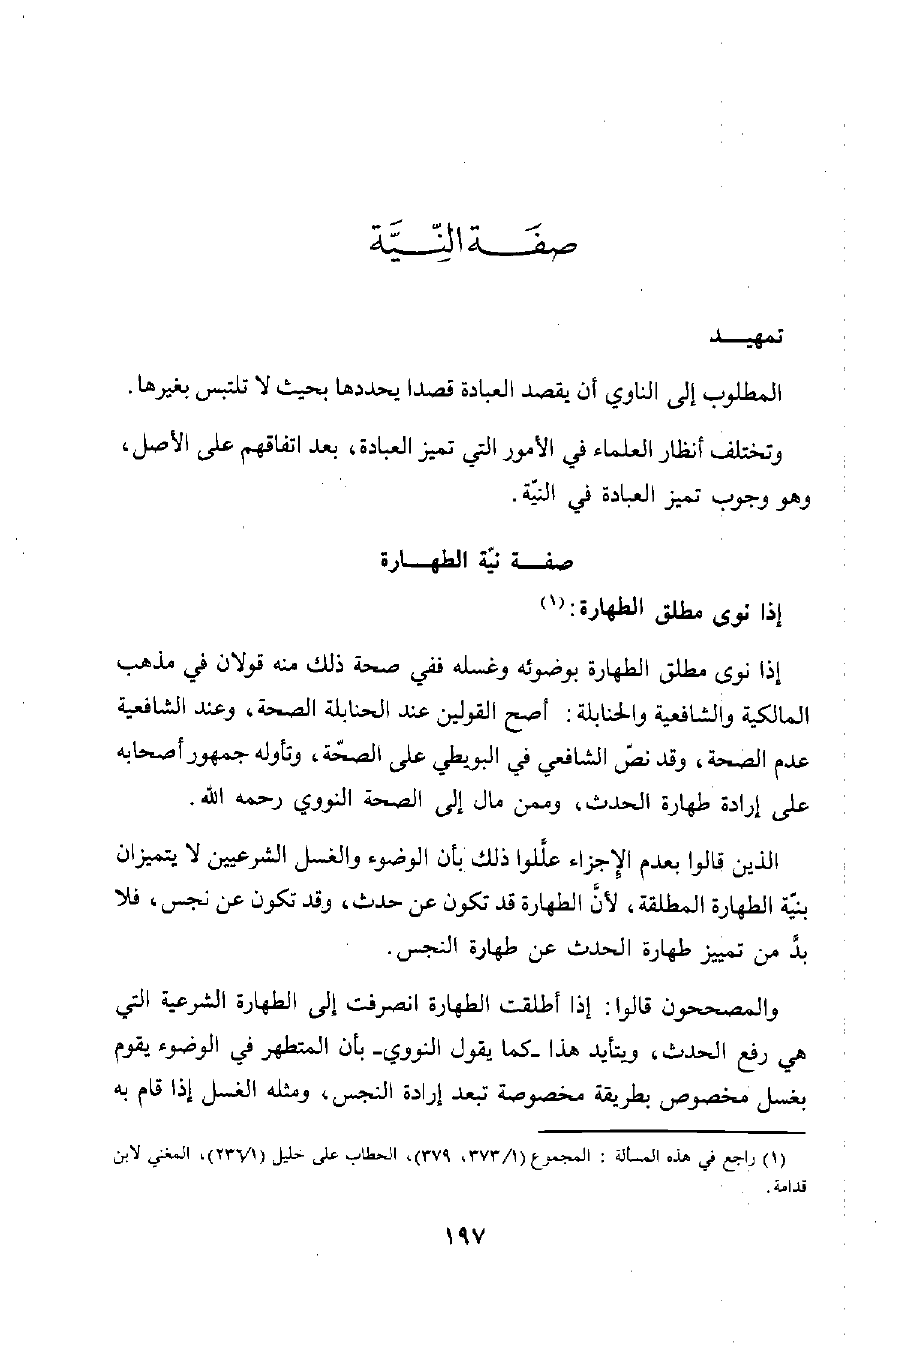 صفة النِّيَّة
تمهيد
المطلوب إلى الناوي أن يقصد العبادة قصدا يحددها بحيث لا تلتبس بغيرها.
وتختلف أنظار العلماء في الأمور التي تميز العبادة، بعد اتفاقهم على الأصل،
وهو وجوب تميز العبادة في النيّة.
صفة نيّة الطهارة
إذا نوى مطلق الطهارة:(١)
إذا نوى مطلق الطهارة بوضوئه وغسله ففي صحة ذلك منه قولان في مذهب
المالكية والشافعية والحنابلة: أصح القولين عند الحنابلة الصحة، وعند الشافعية
عدم الصحة، وقد نصّ الشافعي في البويطي على الصحّة، وتأوله جمهور أصحابه
على إرادة طهارة الحدث، وممن مال إلى الصحة النووي رحمه الله.
الذين قالوا بعدم الإجزاء علَّلوا ذلك بأن الوضوء والغسل الشرعيين لا يتميزان
بنيّة الطهارة المطلقة، لأنَّ الطهارة قد تكون عن حدث، وقد تكون عن نجس، فلا
بدَّ من تمييز طهارة الحدث عن طهارة النجس.
والمصححون قالوا: إذا أطلقت الطهارة انصرفت إلى الطهارة الشرعية التي
هي رفع الحدث، ويتأيد هذا ـكما يقول النوويـ بأن المتطهر في الوضوء يقوم
بغسل مخصوص بطريقة مخصوصة تبعد إرادة النجس، ومثله الغسل إذا قام به
(١) راجع في هذه المسالة : المجموع (٣٧٣/١، ٣٧٩)، الحطاب على خليل (٢٣٦/١)، المغني لابن
قدامة.
١٩٧